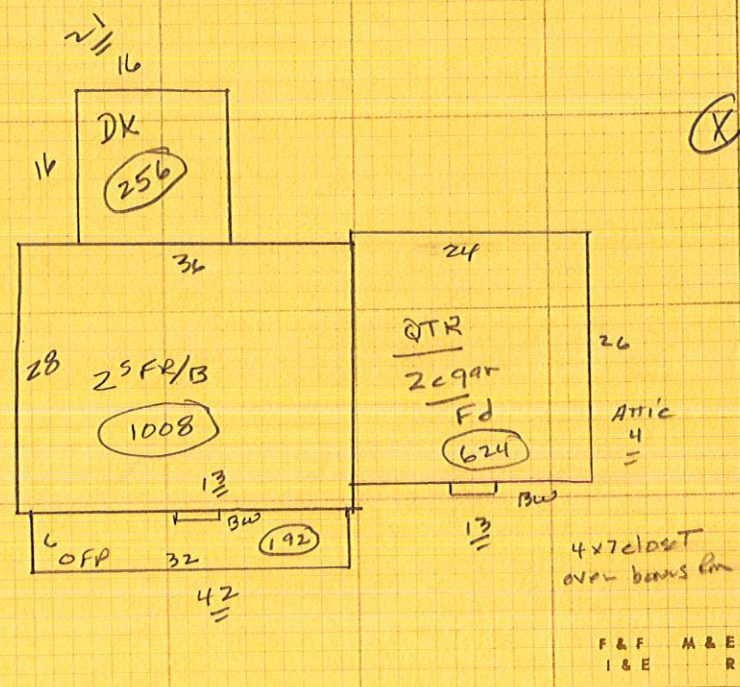 16
DK
16
256
36
24
28
2S FR/B
1008
QTR
2cgar
Fd
624
26
Attic
4
13
BW
6
OFP
32
192
42
BW
13
4x7 closet
over bonus Rm
X
F & F M & E
I & E R